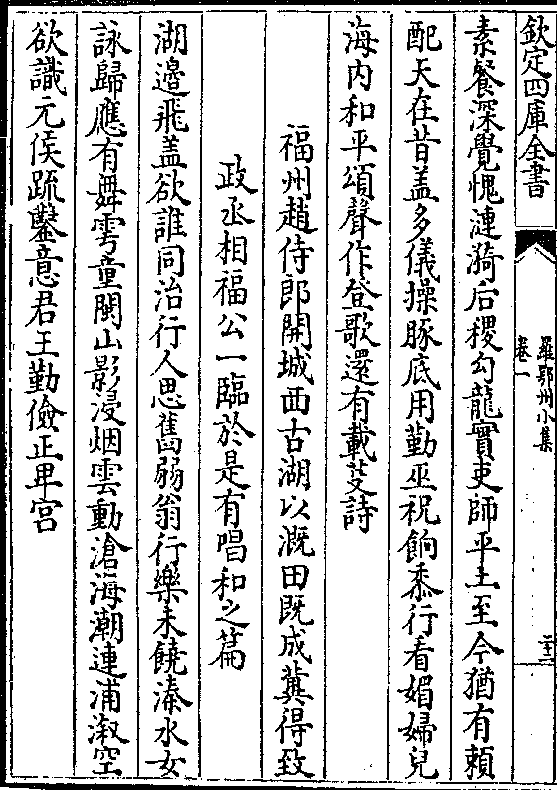 欽定四庫全書
羅鄂州小集
卷一
二十二
素餐深覺愧漣漪后稷勾龍實吏師平土至今猶有賴
配天在昔盖多儀操豚底用勤巫祝餉黍行看媚婦兒
海内和平頌聲作登歌還有載芟詩
福州趙侍郎開城西古湖以溉田既成冀得致
政丞相福公一臨於是有唱和之篇
湖邉飛盖欲誰同治行人思舊弱翁行樂未饒溱水女
詠歸應有舞雩童閩山影浸烟雲動滄海潮連浦溆空
欲識元侯疏鑿意君王勤儉正卑宫